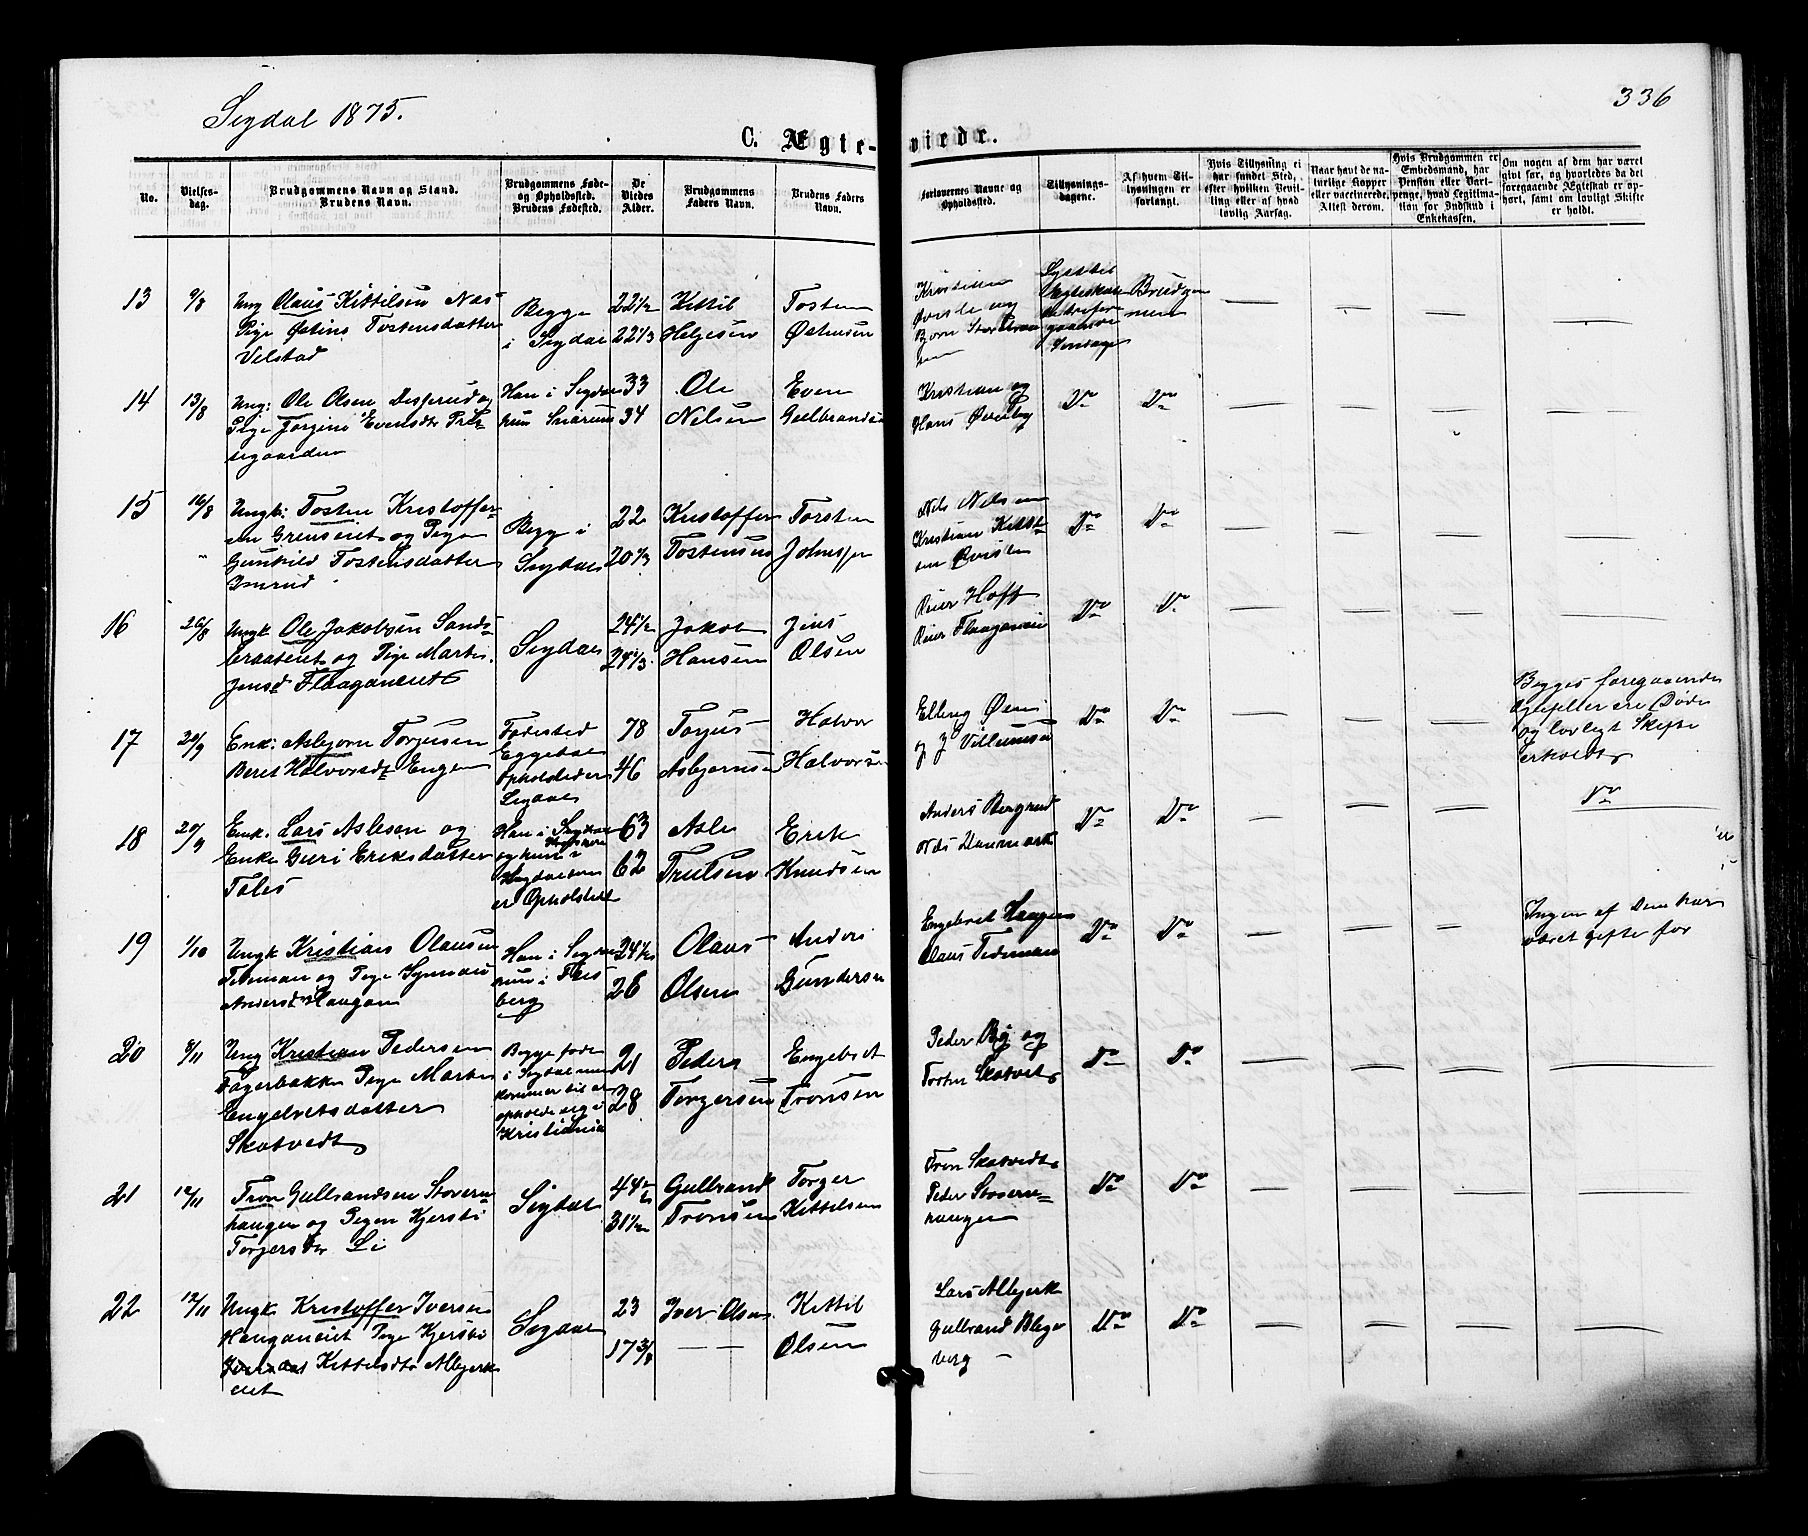 Sigdal 1875.
336
C. Ægte-viede.
No.
Vielses-
dag.
Brudgommens Navn og Stand.
Brudens Navn.
Brudgommens Føde-
og Opholdssted.
Brudens Fødested.
De
Viedes
Alder.
Brudgommens
Faders Navn.
Brudens Faders
Navn.
Forlovernes Navne og
Opholdssted.
Tillysnings-
dagene.
Af hvem Til-
lysningen er
forlangt.
Hvis Tillysning ei
har fundet Sted,
efter hvilken Bevil-
ling eller af hvad
lovlig Aarsag.
Naar havt de na-
turlige Kopper
eller vaccinerede,
Attest derom.
Hvis Brudgommen er
Embedsmand, har
Pension eller Vart-
penge, hvad Legitima-
tion for Indskud i
Enkekassen.
Om nogen af dem har været
gift før, og hvorledes da det
foregaaende Ægteskab er op-
hørt, samt om lovligt Skifte
er holdt.
13
9/8
Ung Olaus Kittilsen Næs
Pige Østine Tostensdatter
Velstad
Begge
i Sigdal
22 1/2
22 1/3
Kittil
Helgesen
Tosten
Østensen
Kristian
Brudgom
men
14
13/8
Ung: Ole Olsen
Pige Jørgine Evensdtr
Han i Sigdal
hun Snarum
33
34
Ole
Nilsen
Even
Gulbrandsen
Kristian og
Hans Øvreby
Do
Do
15
16/8
Ungk: Tosten Kristoffer-
sen Grenseiet og Pige
Gunhild Tostensdatter
Imrud
Begge i
Sigdal
22
20 1/3
Kristoffer
Tostensen
Torsten
Nils Nilsen
Kristian Kittil-
sen
Do
Do
16
26/8
Ungk Ole Jakobsen Sands-
braateiet og Pige Marte
Jensd Flaaganeiet
Sigdal
24 1/2
24 1/3
Jakob
Hansen
Jens
Olsen
Reier Hoff
Reier Flaaganeiet
Do
Do
17
20/9
Enk: Asbjørn Torjusen
Beret Halvorsdt Engen
Fødested
Eggedal
Opholdsted
Sigdal
78
46
Torjus
Asbjørnsen
Halvor
Halvorsen
Elling Øen
og J Villumsen
Do
Do
Begges foregaaende
Ægtefeller ere Døde
og lovligt Skifte
erholdt
18
20/9
Enk. Lars Aslesen og
Enke Guri Eriksdatter
Toles
Han i Sigdal
og hun i
er Opholdsted
63
62
Asle
Trulsen
Erik
Knudsen
Anders Bergerud
Nils Danmark
Do
Do
Do
19
1/10
Ungk Kristian Olausen
Tideman og Pige
Andersdt Haugan
Han i Sigdal
hun i Fles
berg
24 1/2
26
Olaus
Olsen
Anders
Gundersen
Engebret Haugen
Olaus Tideman
Do
Do
Ingen af Dem har
været gifte før
20
8/11
Ung Kristian Pedersen
Fagerbakke Pige Marte
Engebretsdatter
Skatvedt
Begge føde
i Sigdal men
kommer til at
opholde sig i
Kristiania
21
28
Peder
Torgersen
Engebret
Tronsen
Peder By og
Tosten Skatvet
Do
Do
21
12/11
Tron Gulbrandsen Stoveren
haugen og Pigen Kjersti
Torgersdtr Li
Sigdal
44 1/2
31 1/2
Gulbrand
Tronsen
Torger
Kittilsen
Tron Skatvedt
Peder Stoveren-
haugen
Do
Do
22
12/11
Ungk Kristoffer Iversen
Hauganeiet Pige Kjersti
Kittilsdtr Albjerk
eiet
Sigdal
23
17 3/4
Iver Olsen
— —
Kittil
Olsen
Lars Albjerk
Gulbrand Bleger
berg —
Do
Do